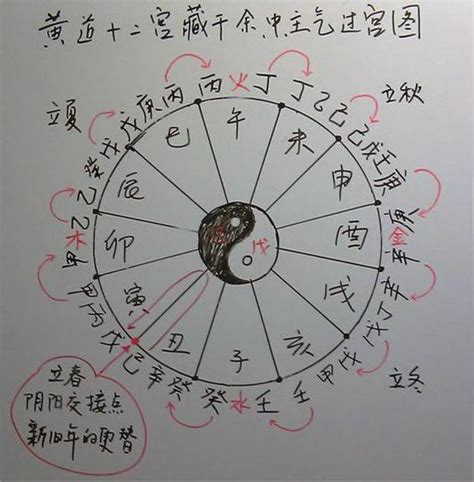 黄道十二宫藏干余中主气过宫图
立夏
立秋
立冬
戊庚丙
丙火丁
丁乙己
己戊壬庚
金辛
辛丁戊
戊甲壬
壬水癸
癸辛己
戊丙甲
甲木乙
乙癸戊
巳
午
未
申
酉
戌
亥
子
丑
寅
卯
辰
戊
立春
阴阳交接点
新旧年的更替